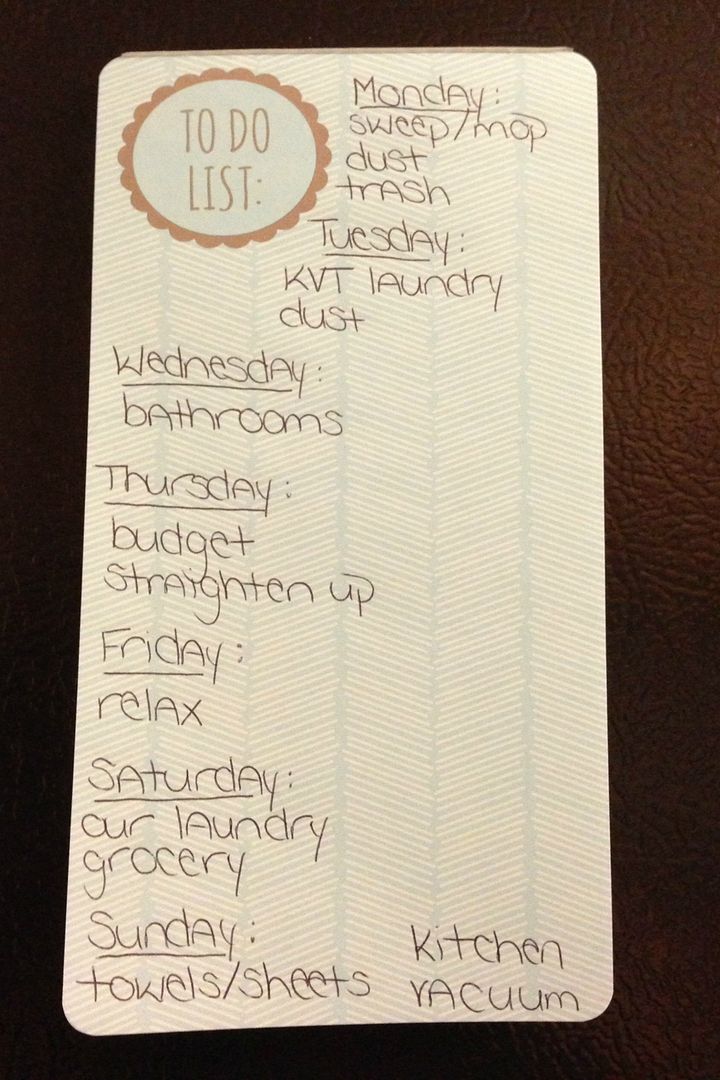 TO DO
LIST:
Monday:
sweep/mop
dust
trash
Tuesday:
KVT laundry
dust
Wednesday:
bathrooms
Thursday:
budget
straighten up
Friday:
relax
Saturday:
our laundry
grocery
Sunday:
towels/sheets
kitchen
vacuum